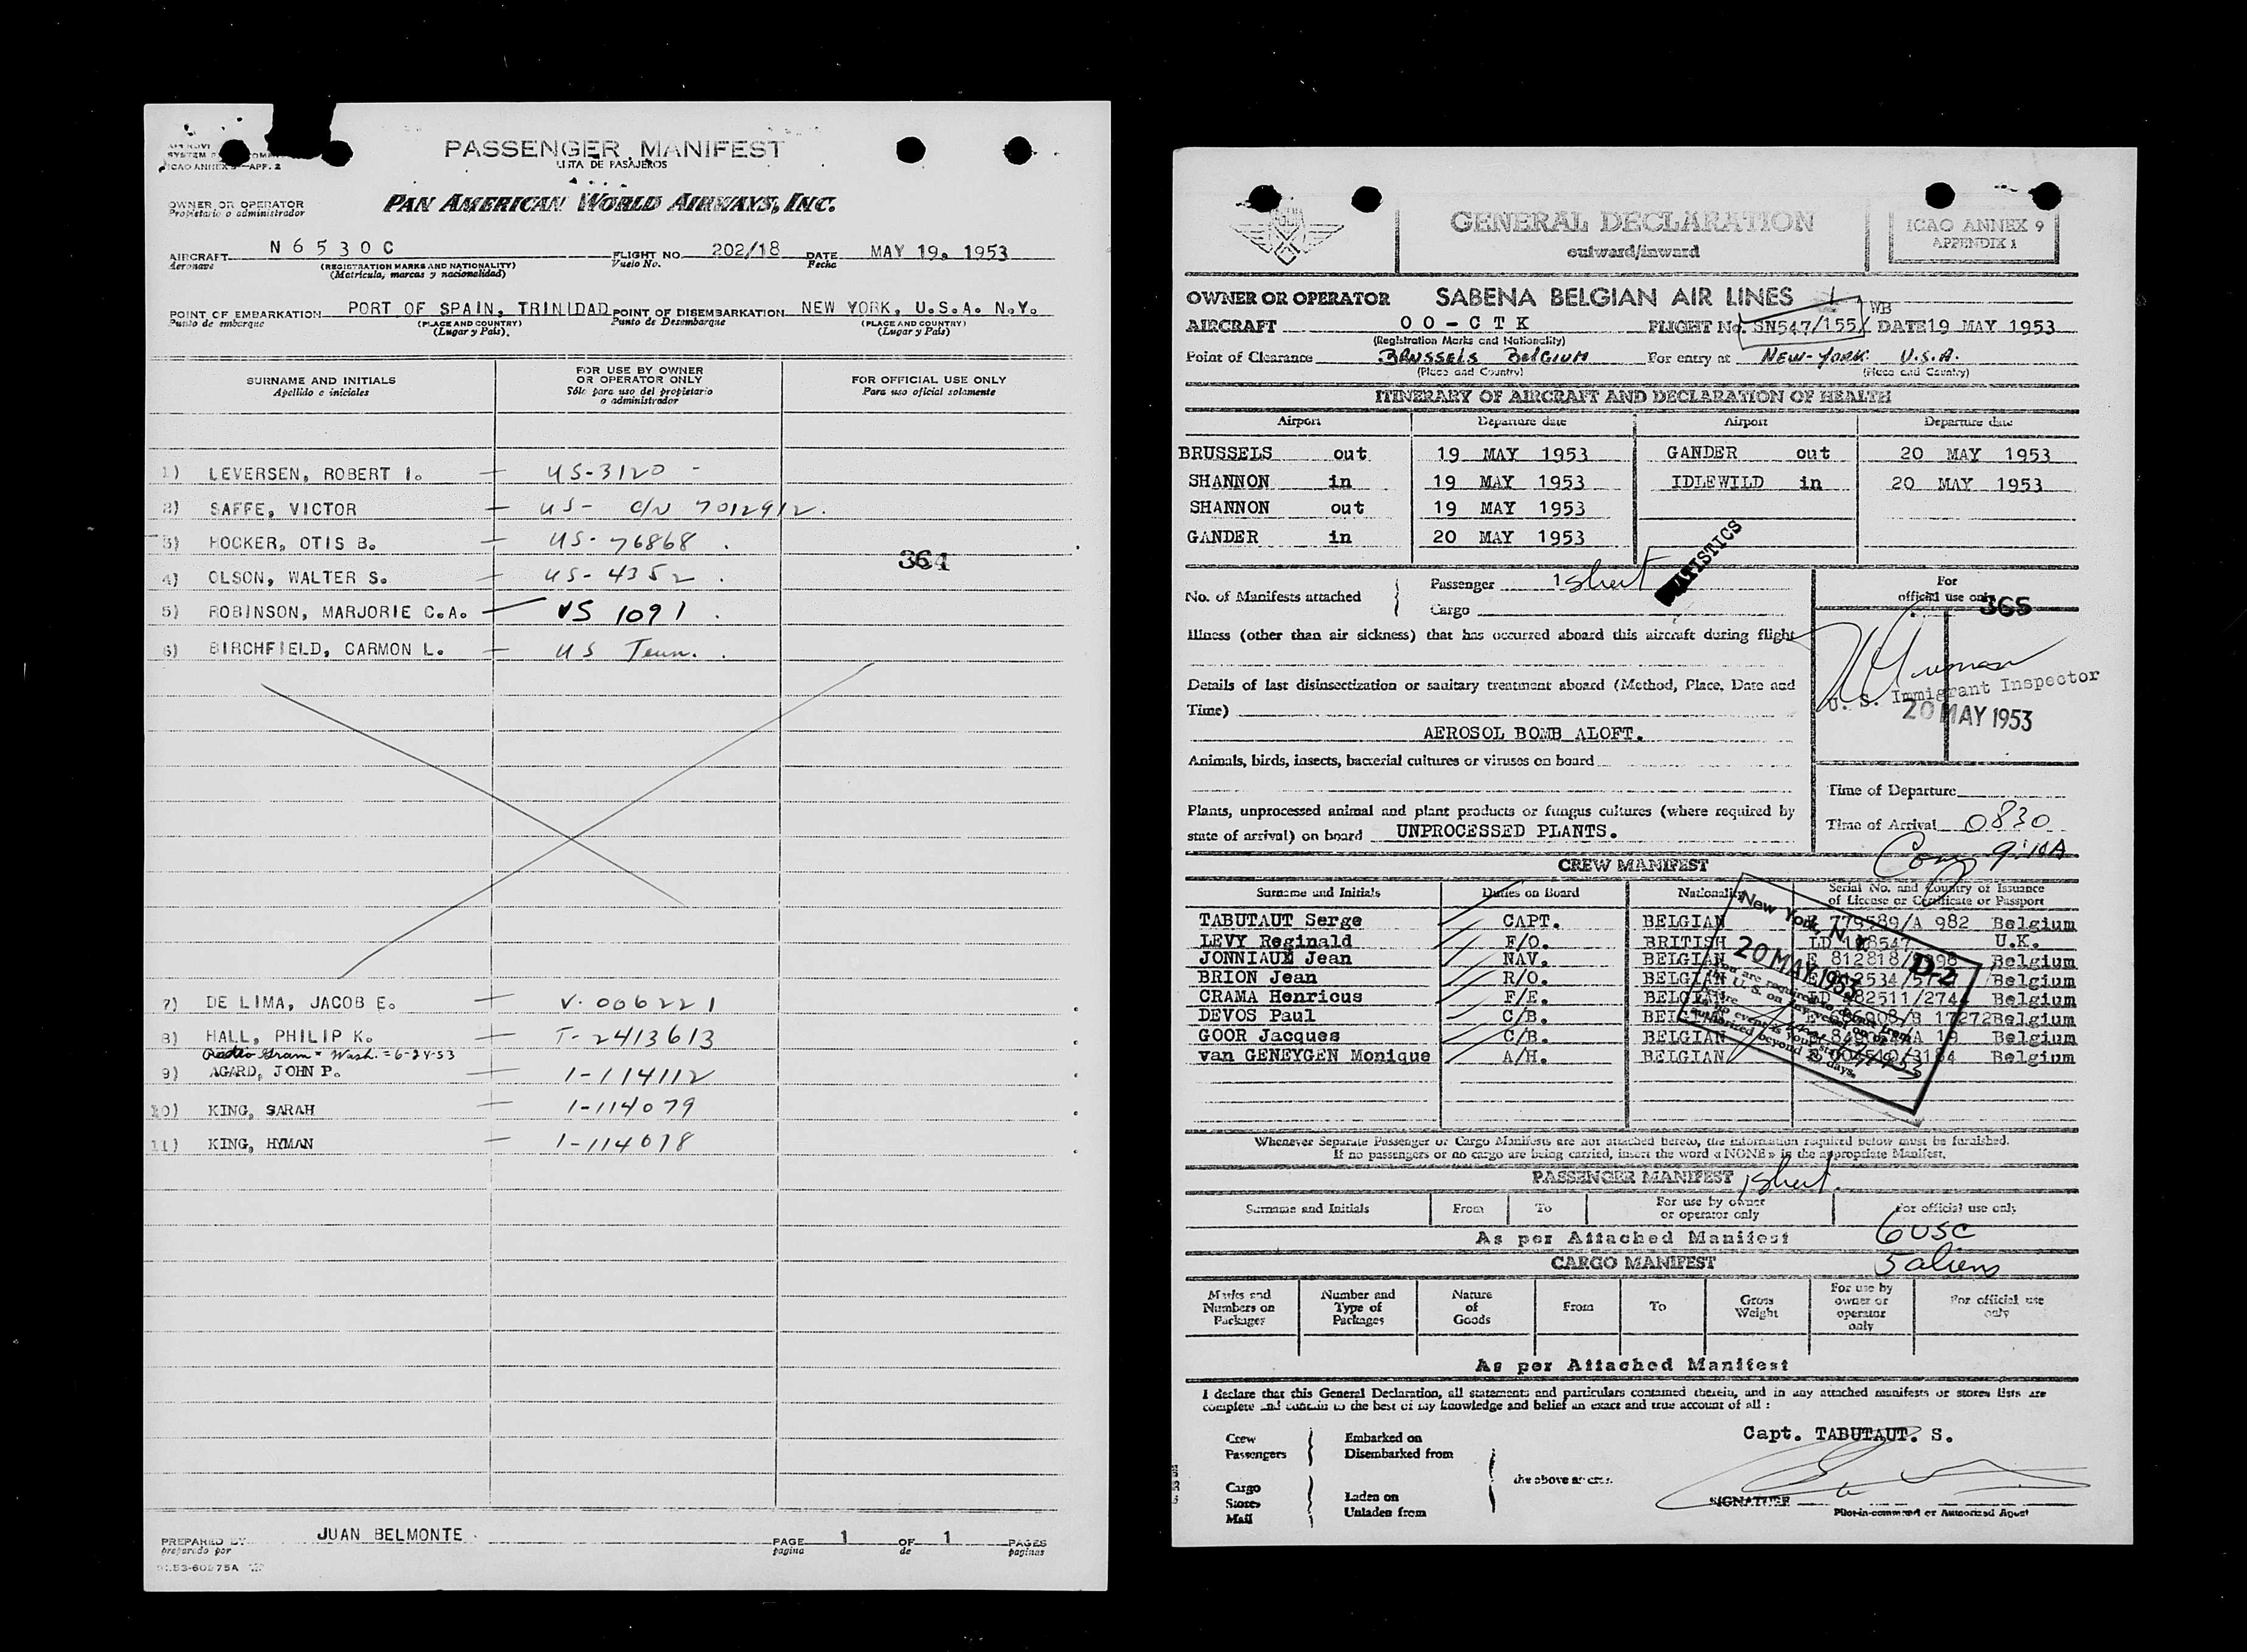 ICAO ANNEX 9—APP. 2
PASSENGER MANIFEST
LISTA DE PASAJEROS
PAN AMERICAN WORLD AIRWAYS, INC.
OWNER OR OPERATOR
Propietario o administrador
AIRCRAFT N6530C FLIGHT NO. 202/18 DATE MAY 19, 1953
Aeronave (REGISTRATION MARKS AND NATIONALITY) Vuelo No. Fecha
(Matrícula, marcas y nacionalidad)
POINT OF EMBARKATION PORT OF SPAIN, TRINIDAD POINT OF DISEMBARKATION NEW YORK, U.S.A. N.Y.
Punto de embarque (PLACE AND COUNTRY) Punto de Desembarque (PLACE AND COUNTRY)
(Lugar y País). (Lugar y País)
SURNAME AND INITIALS FOR USE BY OWNER OR OPERATOR ONLY FOR OFFICIAL USE ONLY
Apellido e iniciales Sólo para uso del propietario o administrador Para uso oficial solamente
1) LEVERSEN, ROBERT I. — US-3120 -
2) SAFFE, VICTOR — US- C/N 7012912.
3) HOCKER, OTIS B. — US-76868.
364
4) OLSON, WALTER S. — US-4352.
5) ROBINSON, MARJORIE C.A. — VS 1091.
6) BIRCHFIELD, CARMON L. — US Tenn.
7) DE LIMA, JACOB E. — V-006221
8) HALL, PHILIP K. — T-2413613
Radio Gram = Wash. = 6-24-53
9) AGARD, JOHN P. — 1-114112
10) KING, SARAH — 1-114079
11) KING, HYMAN — 1-114078
PREPARED BY JUAN BELMONTE PAGE 1 OF 1 PAGES
preparado por pagina de paginas
GENERAL DECLARATION
outward/inward
ICAO ANNEX 9
APPENDIX 1
OWNER OR OPERATOR SABENA BELGIAN AIR LINES
WB
AIRCRAFT OO-CTK FLIGHT No. SN547/155 DATE 19 MAY 1953
(Registration Marks and Nationality)
Point of Clearance BRUSSELS BELGIUM For entry at NEW-YORK U.S.A.
(Place and Country) (Place and Country)
ITINERARY OF AIRCRAFT AND DECLARATION OF HEALTH
Airport Departure date Airport Departure date
BRUSSELS out 19 MAY 1953 GANDER out 20 MAY 1953
SHANNON in 19 MAY 1953 IDLEWILD in 20 MAY 1953
SHANNON out 19 MAY 1953
GANDER in 20 MAY 1953
ATISTICS
No. of Manifests attached Passenger 1 sheet
Cargo
For
official use only
365
Illness (other than air sickness) that has occurred aboard this aircraft during flight
U. S. Immigrant Inspector
20 MAY 1953
Details of last disinsectization or sanitary treatment aboard (Method, Place, Date and
Time)
AEROSOL BOMB ALOFT.
Animals, birds, insects, bacterial cultures or viruses on board
Time of Departure
Plants, unprocessed animal and plant products or fungus cultures (where required by
state of arrival) on board UNPROCESSED PLANTS.
Time of Arrival 0830
9:10A
CREW MANIFEST
Surname and Initials Duties on Board Nationality Serial No. and Country of Issuance
of License or Certificate or Passport
TABUTAUT Serge CAPT. BELGIAN 779589/A 982 Belgium
LEVY Reginald F/O. BRITISH U.K.
JONNIAUX Jean NAV. BELGIAN E 812818 Belgium
BRION Jean R/O. BELGIAN Belgium
CRAMA Henricus F/E. BELGIAN Belgium
DEVOS Paul C/B. BELGIAN Belgium
GOOR Jacques C/B. BELGIAN Belgium
van GENEYGEN Monique A/H. BELGIAN Belgium
New York, N.Y.
20 MAY 1953
D-2
Whenever Separate Passenger or Cargo Manifests are not attached hereto, the information required below must be furnished.
If no passengers or no cargo are being carried, insert the word « NONE » in the appropriate Manifest.
PASSENGER MANIFEST 1 sheet.
Surname and Initials From To For use by owner or operator only For official use only
As per Attached Manifest
6 USC
5 aliens
CARGO MANIFEST
Marks and Numbers on Packages Number and Type of Packages Nature of Goods From To Gross Weight For use by owner or operator only For official use only
As per Attached Manifest
I declare that this General Declaration, all statements and particulars contained therein, and in any attached manifests or stores lists are
complete and contain to the best of my knowledge and belief an exact and true account of all :
Capt. TABUTAUT. S.
Crew Embarked on
Passengers Disembarked from
the above aircraft.
Cargo
Stores Laden on
Mail Unladen from
SIGNATURE
Pilot-in-command or Authorized Agent